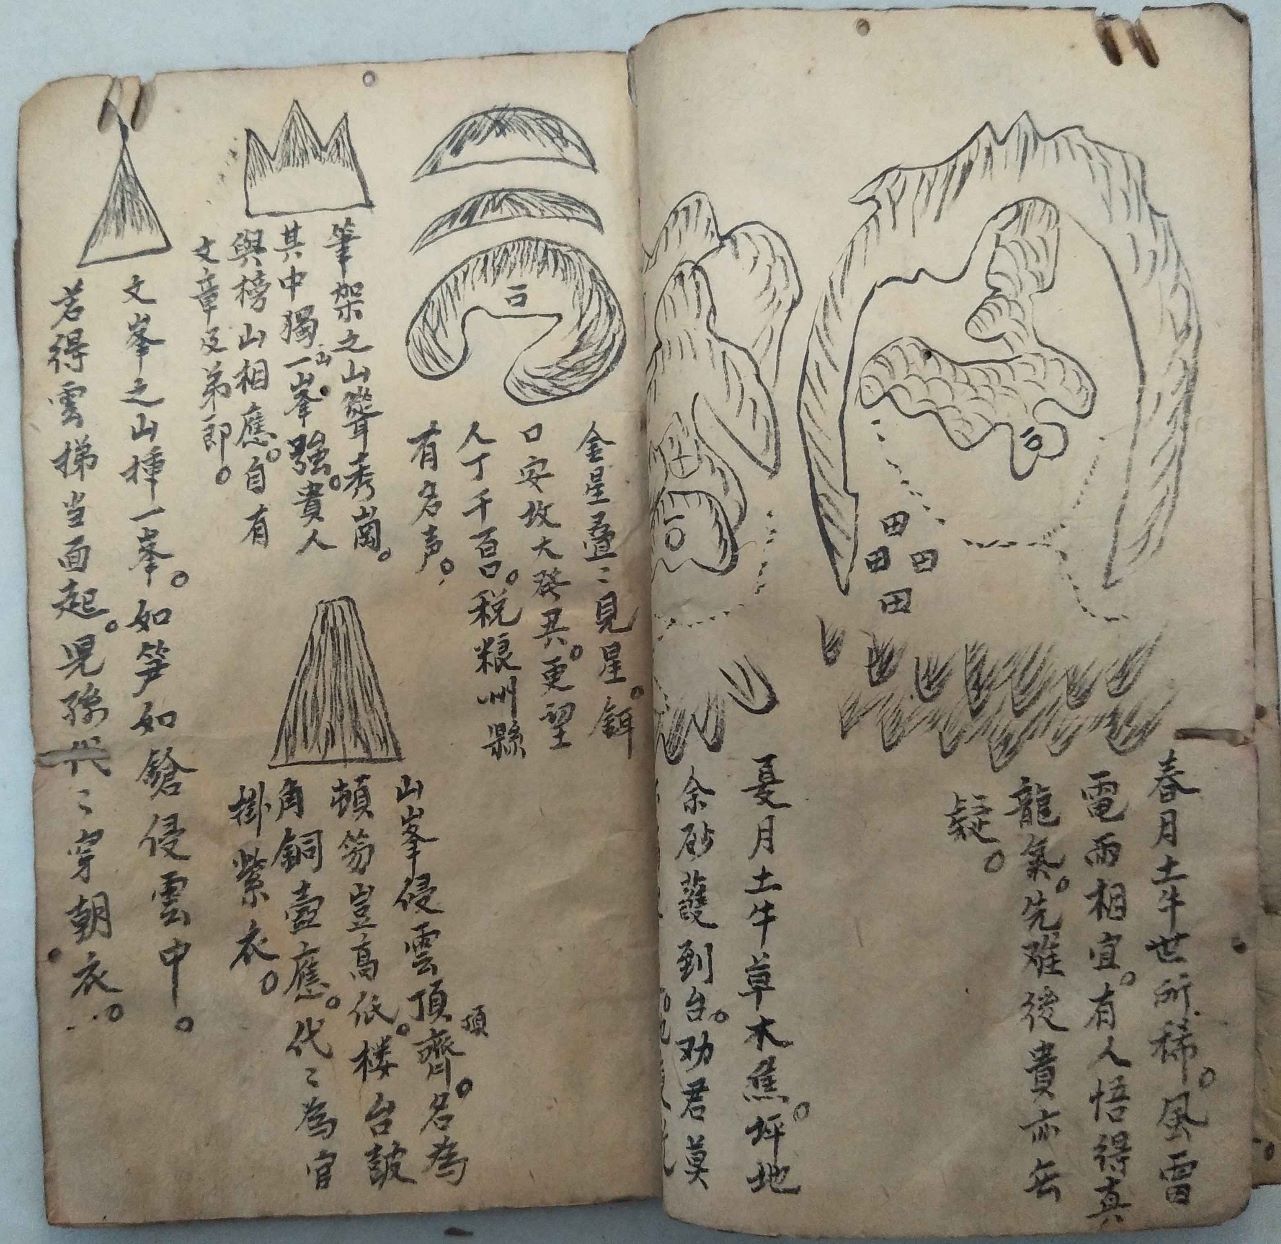 春月土牛世所稀。風雷
電雨相宜。有人悟得真
龍氣。先难後貴亦無
疑。
田
田
田
田
夏月土牛草木焦。坪地
余砂護到台。劝君莫
金星叠〻見星。鉺
口安坟大發丑。更望
人丁千百口。税粮州縣
有名声。
筆架之山聳秀崗。
其中獨一峯强。貴人
山
與榜山相應。自有
文章及弟郎。
山峯侵雲頂齊。名為
頂
頓笏豈高低。楼台鼓
角銅壺應。代〻為官
掛紫衣。
文峯之山揷一峯。如笋如鎗侵雲中。
若得雲梯当面起。児孫代〻穿朝衣。